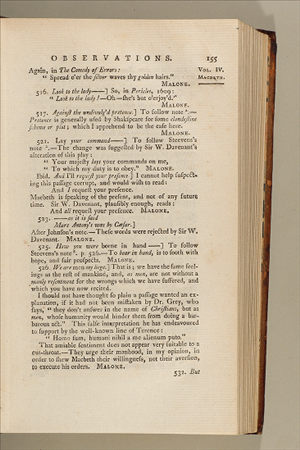 OBSERVATIONS.
155
Again, in The Comedy of Errors:
Vol. IV.
Macbeth.
" Spread o'er the silver waves thy golden hairs."
MALONE.
516. Look to the lady——] So, in Pericles, 1609:
" Look to the lady!—Oh—she's but o'erjoy'd."
MALONE.
517. Against the undivulg'd pretence] To follow Steevens's note ².—
Pretence is generally used by Shakspeare for some clandestine
scheme or plot; which I apprehend to be the case here.
MALONE.
521. Lay your command——] To follow Steevens's
note ².—The change was suggested by Sir W. Davenant's
alteration of this play:
" Your majesty lays your commands on me,
" To which my duty is to obey." MALONE.
Ibid. And I'll request your presence] I cannot help suspect-
ing this passage corrupt, and would with to read:
And I request your presence.
Macbeth is speaking of the present, and not of any future
time. Sir W. Davenant, plausibly enough, reads:
And all request your presence. MALONE.
523. ——as it is said
Mark Antony's was by Cæsar.]
After Johnson's note.—These words were rejected by Sir W.
Davenant. MALONE.
525. How you were borne in hand ——] To follow
Steevens's note ⁹. p. 526.—To bear in hand, is to sooth with
hope, and fair prospects. MALONE.
526. We are men my liege.] That is; we have the same feel-
ings as the rest of mankind, and, as men, are not without a
manly resentment for the wrongs which we have suffered, and
which you have now recited.
I should not have thought so plain a passage wanted an ex-
planation, if it had not been mistaken by Dr. Grey, who
says, " they don't answer in the name of Christians, but as
men, whose humanity would hinder them from doing a bar-
barous act." This false interpretation he has endeavoured
to support by the well-known line of Terence:
" Homo sum, humani nihil a me alienum puto."
That amiable sentiment does not appear very suitable to a
cut-throat.—They urge their manhood, in my opinion, in
order to shew Macbeth their willingness, not their aversion,
to execute his orders. MALONE.
531. But